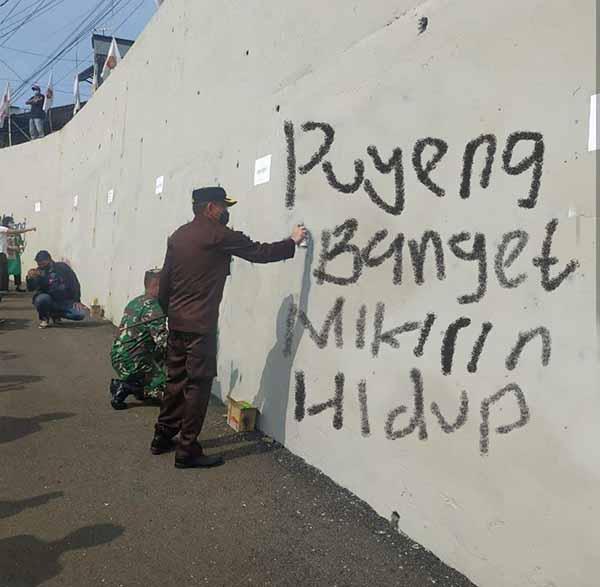 Puyeng
Banget
Mikirin
Hidup